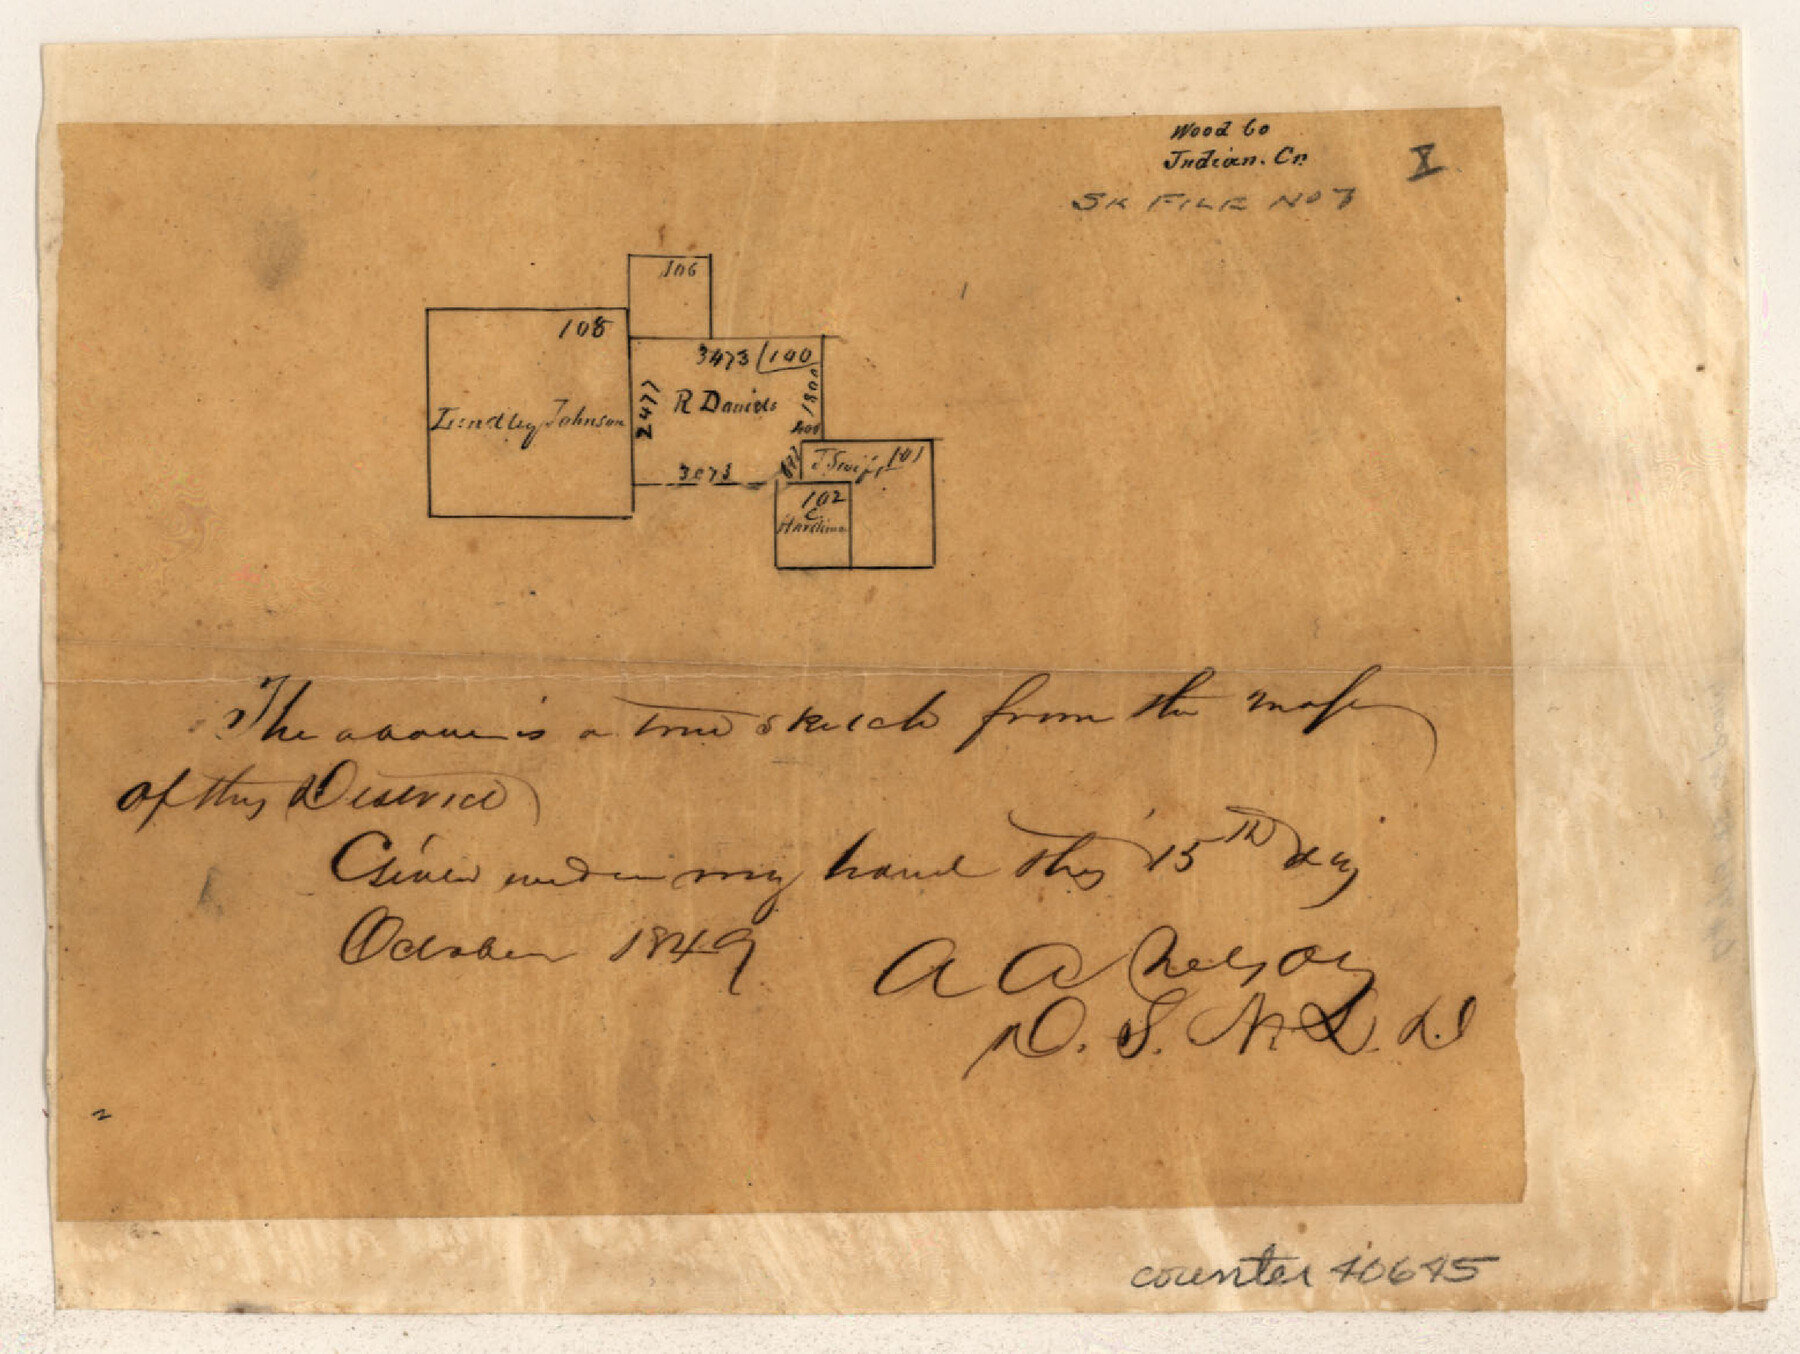 Wood Co
Indian. Cr.
X
SK FILE NO 7
106
108
3473 100
1800
2477
R Daniels
Lindley Johnson
400
677
3073
J. Swift 101
102
C
Hardima
The above is a true sketch from the map
of this District
Given under my hand this 15th day
October 1849
A A Nelson
D. S. N. D. d.
counter 40645